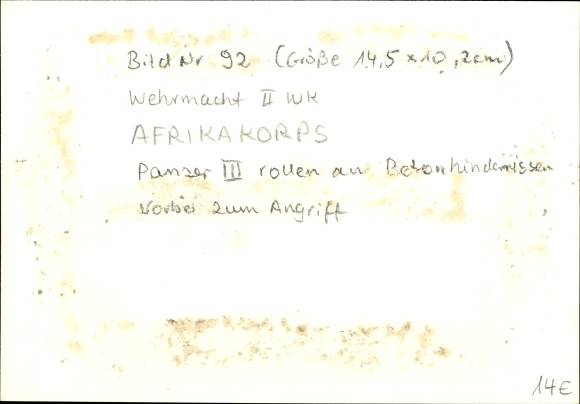 Bild Nr 92 (Größe 14,5 x 10,2cm)
Wehrmacht II WK
AFRIKAKORPS
Panzer III rollen an Betonhindernissen
vorbei zum Angriff
14€